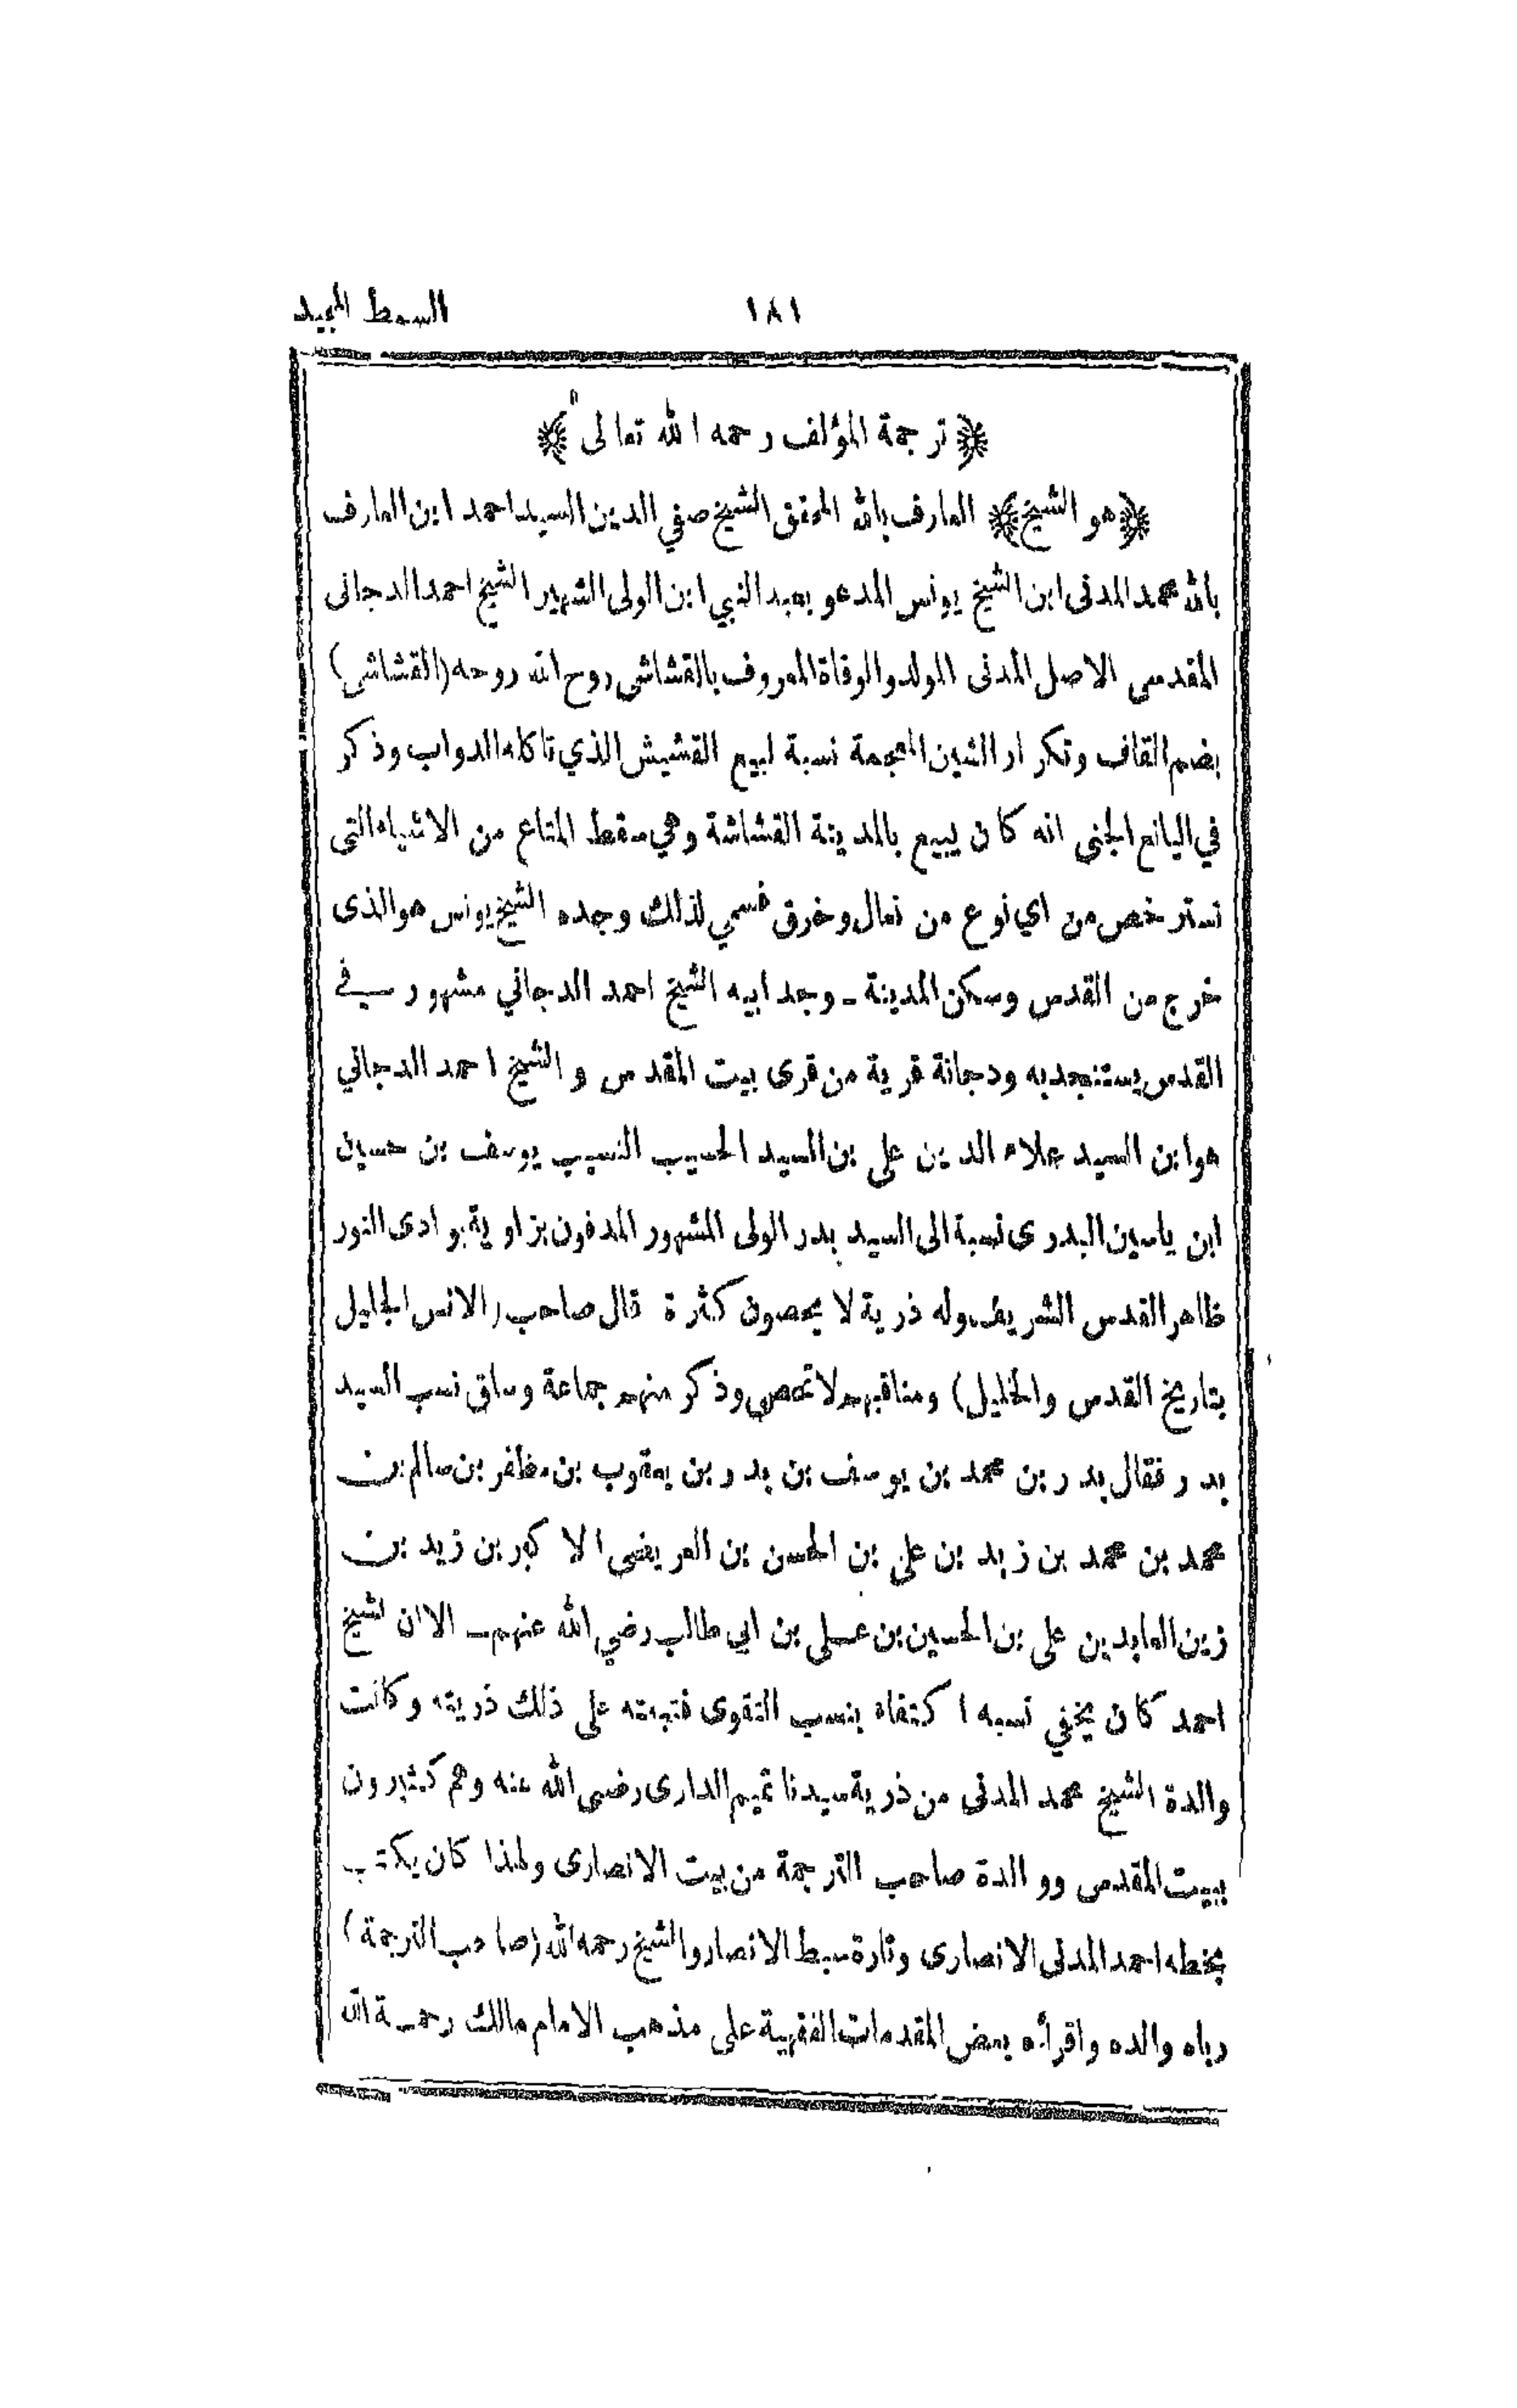 السمط المجيد ١٨١
﴿ ترجمة المؤلف رحمه الله تعالى ﴾
﴿ هو الشيخ ﴾ العارف بالله المحقق الشيخ صفي الدين السيد احمد ابن العارف
بالله محمد المدنى ابن الشيخ يونس المدعو بعبد النبي ابن الولى الشهير الشيخ احمد الدجانى
المقدسى الاصل المدنى المولد والوفاة المعروف بالقشاشى روح الله روحه (القشاشى)
بضم القاف وتكرار الشين المعجمة نسبة لبيع القشيش الذي تاكله الدواب وذكر
في اليانع الجنى انه كان يبيع بالمدينة القشاشة وهي سقط المتاع من الاشياء التى
تسترخص من اي نوع من نعال وخرق فسمي لذلك وجده الشيخ يونس هو الذى
خرج من القدس وسكن المدينة ـ وجد ابيه الشيخ احمد الدجاني مشهور في
القدس يستنجد به ودجانة قرية من قرى بيت المقدس والشيخ احمد الدجاني
هو ابن السيد علاء الدين على بن السيد الحسيب النسيب يوسف بن حسين
ابن ياسين البدرى نسبة الى السيد بدر الولى المشهور المدفون بزاوية بوادى النور
ظاهر القدس الشريف وله ذرية لا يحصون كثرة قال صاحب (الانس الجليل
بتاريخ القدس والخليل) ومناقبهم لا تحصى وذكر منهم جماعة وساق نسب السيد
بدر فقال بدر بن محمد بن يوسف بن بدر بن يعقوب بن مظفر بن سالم بن
محمد بن محمد بن زيد بن على بن الحسن بن العريضى الاكبر بن زيد بن
زين العابدين على بن الحسين بن عـلى بن ابي طالب رضي الله عنهم ـ الا ان لشيخ
احمد كان يخفي نسبه اكتفاء بنسب التقوى فتبعته على ذلك ذريته وكانت
والدة الشيخ محمد المدنى من ذرية سيدنا تميم الدارى رضى الله عنه وهم كثيرون
ببيت المقدس ووالدة صاحب الترجمة من بيت الانصارى ولهذا كان يكتب
بخطه احمد المدنى الانصارى وتارة سبط الانصار والشيخ رحمه الله (صاحب الترجمة)
رباه والده واقرأه بعض المقدمات الفقهية على مذهب الامام مالك رحمـة الله